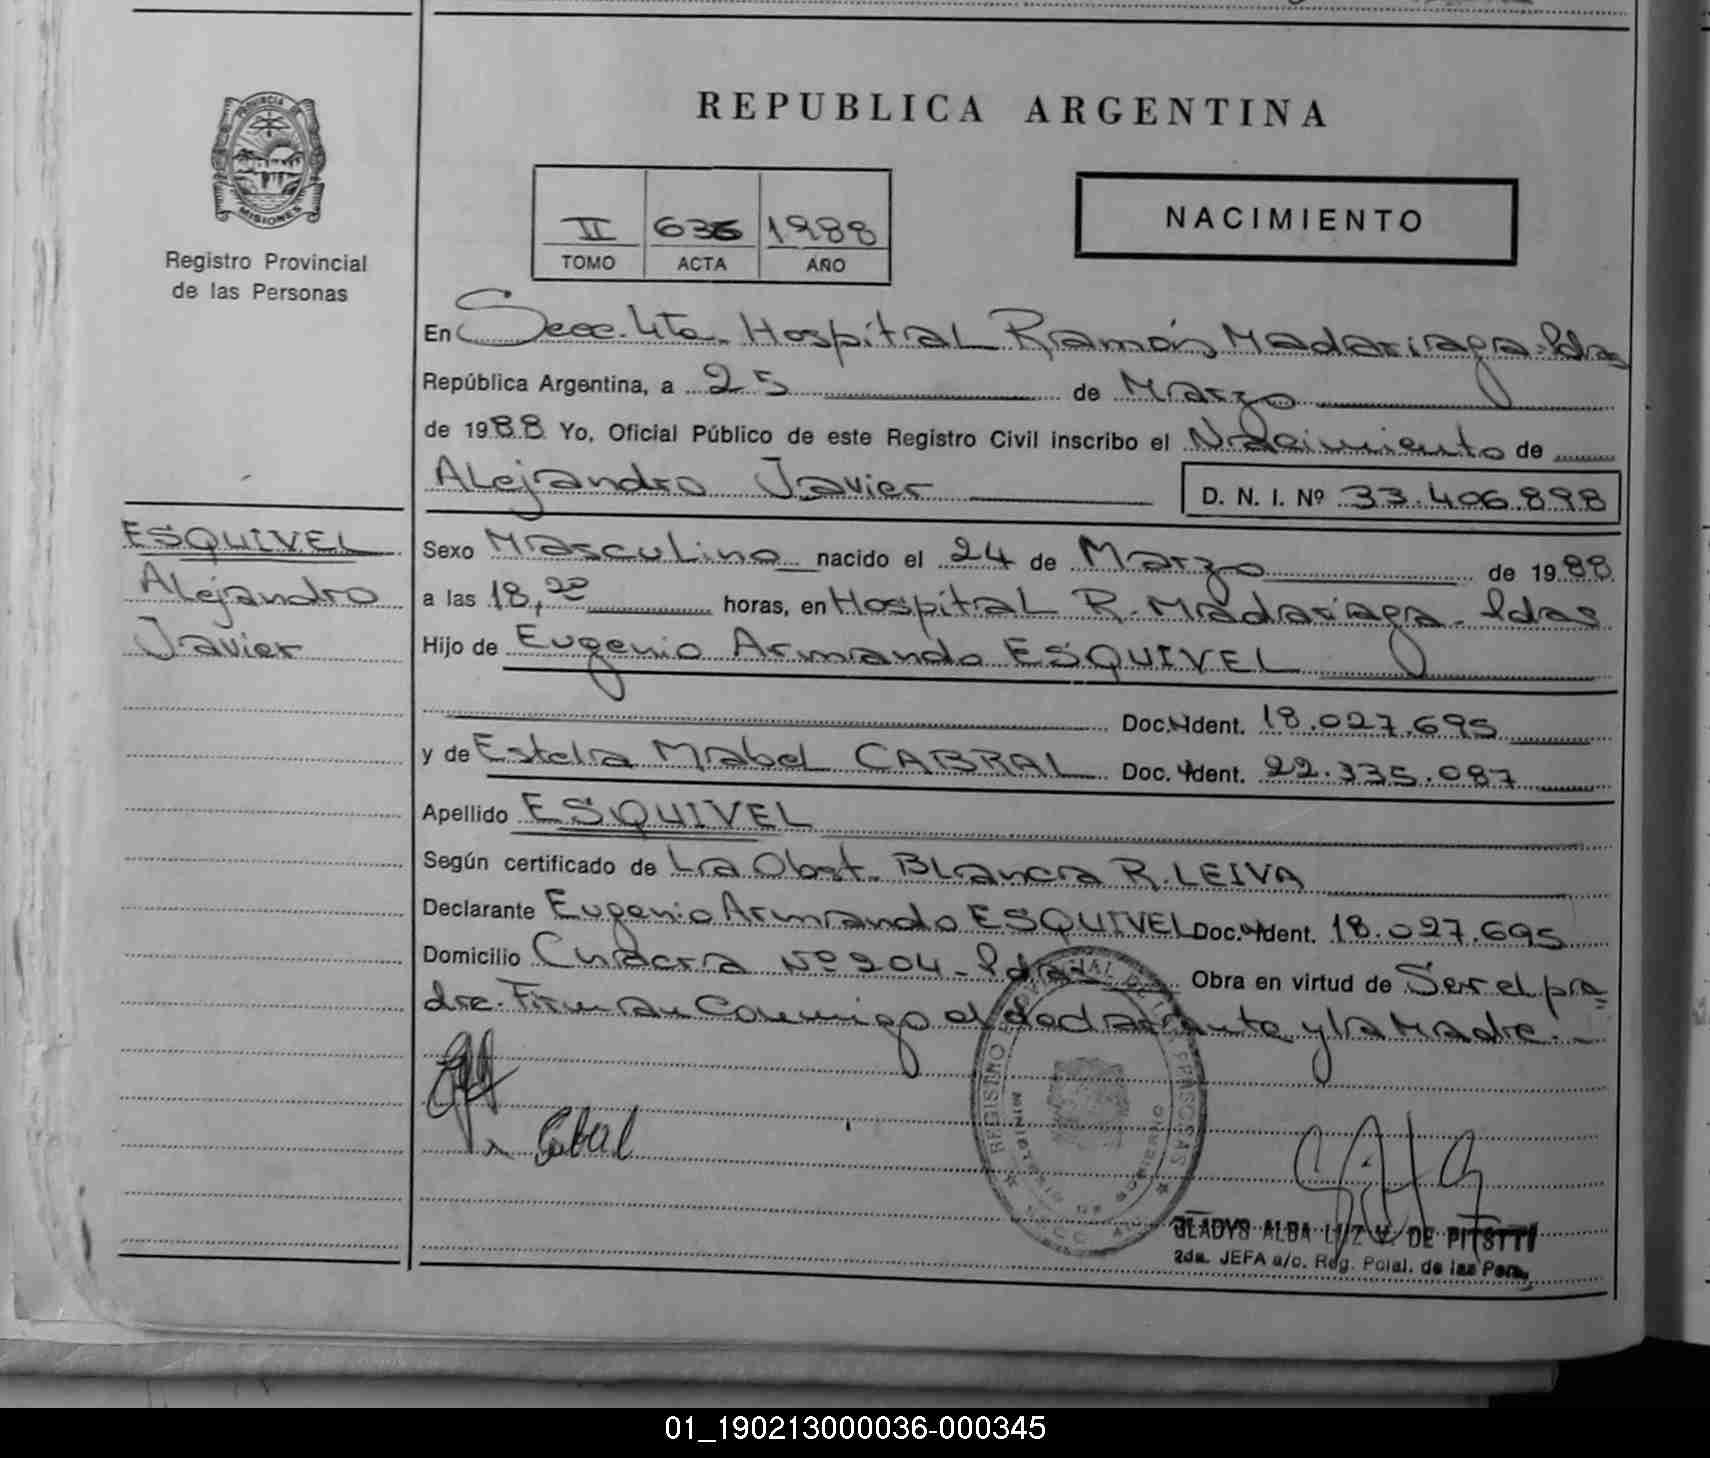 PROVINCIA DE
MISIONES
Registro Provincial
de las Personas
REPUBLICA ARGENTINA
II 636 1988
TOMO ACTA AÑO
NACIMIENTO
En Secc. 4ta. Hospital Ramón Madariaga. Pdas
República Argentina, a 25 de Marzo
de 1988 Yo, Oficial Público de este Registro Civil inscribo el Nacimiento de
Alejandro Javier D. N. I. Nº 33.406.898
ESQUIVEL
Alejandro
Javier
Sexo Masculino nacido el 24 de Marzo de 1988
a las 18,20 horas, en Hospital R. Madariaga. Pdas
Hijo de Eugenio Armando ESQUIVEL
Doc. Ident. 18.027.695
y de Estela Mabel CABRAL Doc. Ident. 22.335.087
Apellido ESQUIVEL
Según certificado de La Obst. Blanca R. LEIVA
Declarante Eugenio Armando ESQUIVEL Doc. Ident. 18.027.695
Domicilio Nº 204 - Pdas Obra en virtud de Ser el pa=
dre. Firman Conmigo el declarante y la Madre. -
Cabral
REGISTRO PROVINCIAL DE LAS PERSONAS
MINISTERIO DE GOBIERNO
GLADYS ALBA LUZ V. DE
2da. JEFA a/c. Reg. Pcial. de las Pers.
01_190213000036-000345